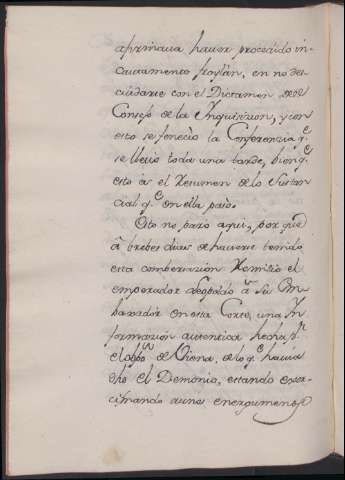 afirmava haver procedido in-
cautamente froylan, en no des
cuidarse con el Dictamen del
Consejo de la Inquisizion, y con
esto se fenecio la Conferenzia q.e
se llevo toda una tarde, bien q.e
esto es el Resumen de lo Sustan
cial q.e en ella pasó.
Esto no paró aqui, por que
à brebes dias de haverse tenido
esta combersazion Remitió el
emperador Leopoldo à Su Em
baxador en esta Corte, una In
formazion autentica hecha p.r
el obpo de Viena, de lo q.e havia
dho el Demonio, estando exsor-
cismando à unos energumenos